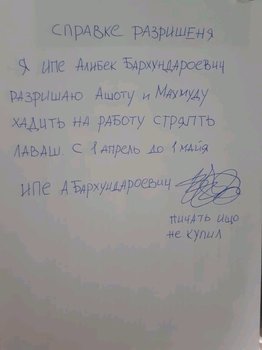 СПРАВКЕ РАЗРИШЕНЯ
Я ИПЕ АЛИБЕК БАРХУНДАРОЕВИЧ
РАЗРИШАЮ АШОТУ И МАХМУДУ
ХАДИТЬ НА РАБОТУ СТРЯПТЬ
ЛАВАШ С 1 АПРЕЛЬ ДО 1 МАЙЯ
ИПЕ А.БАРХУНДАРОЕВИЧ
ПИЧАТЬ ИЩО
НЕ КУПИЛ